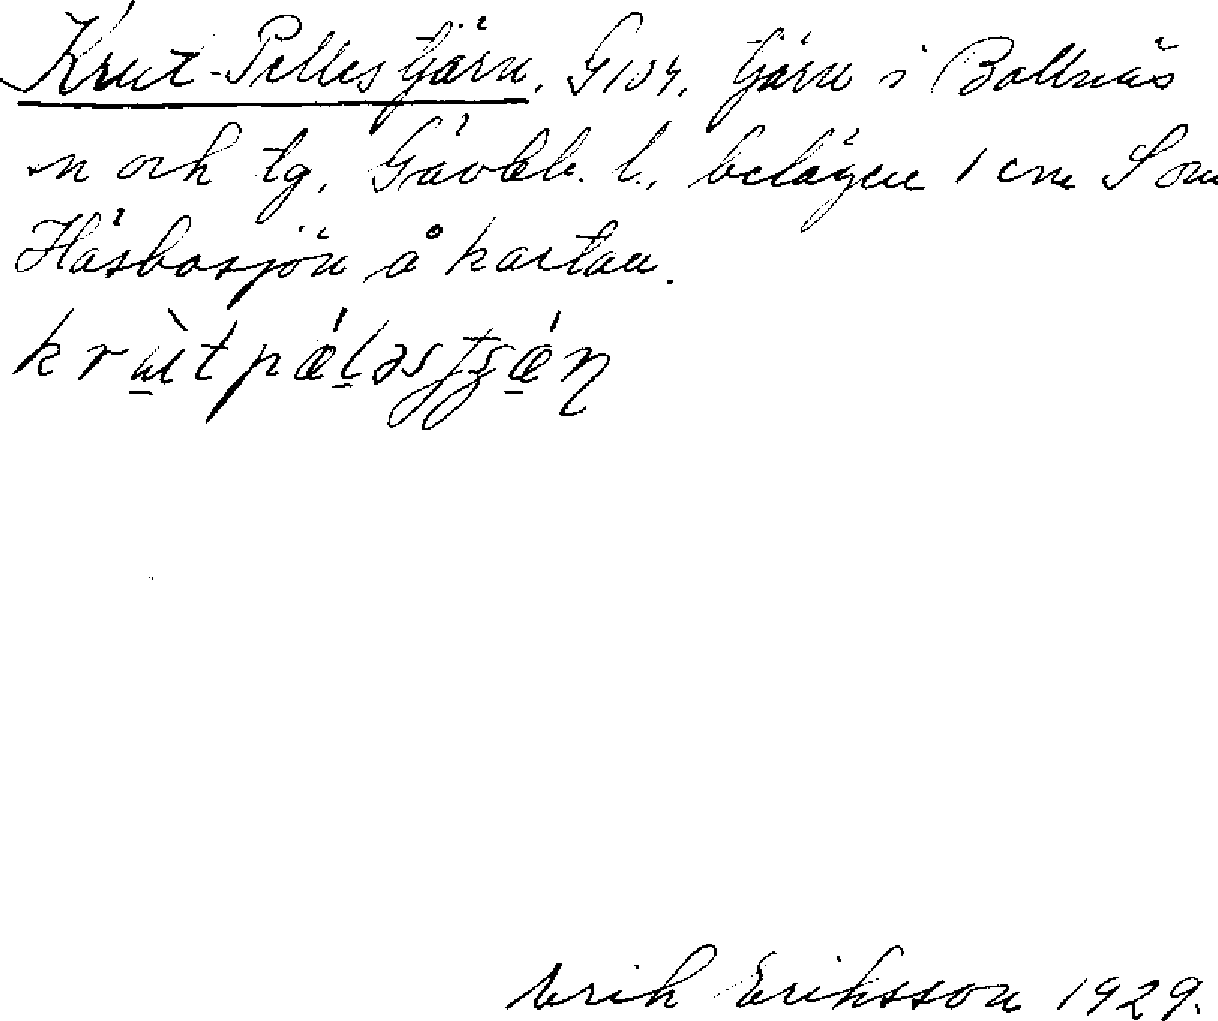 Krut-Pelles tjärn. G 104. tjärn i Bollnäs
sn och tg, Gävleb. l., belägen 1 cm S om
Häsbosjön å kartan.
Erik Eriksson 1929.